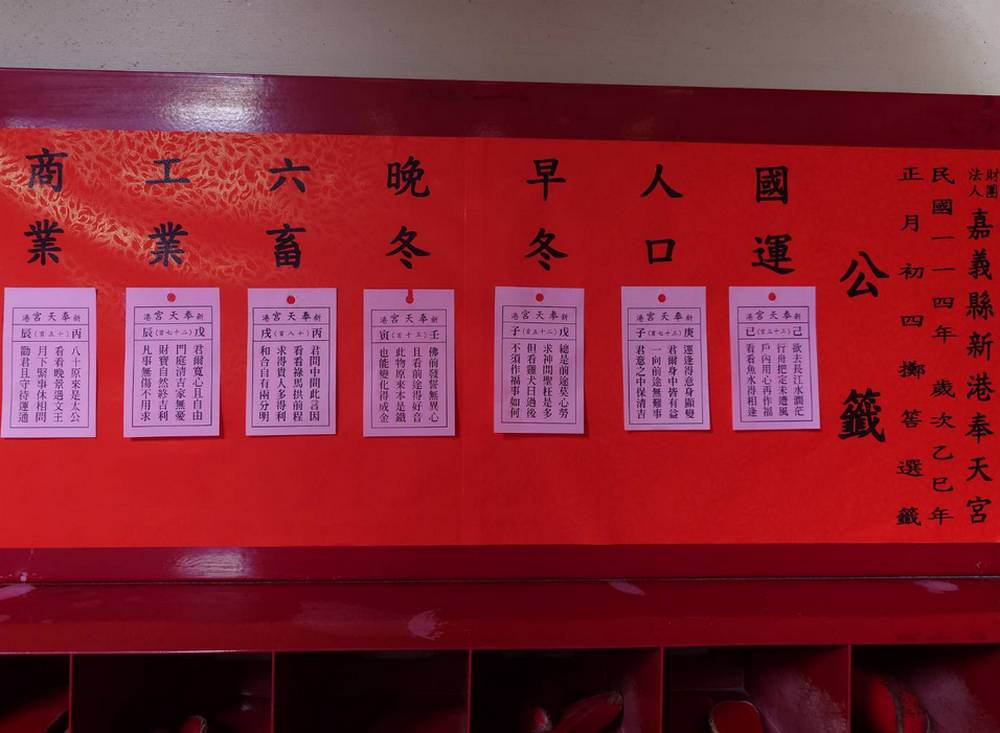 財團法人嘉義縣新港奉天宮
民國一一四年歲次乙巳年
正月初四擲筶選籤
公籤
國運
新港奉天宮
己（三十三首）巳
欲去長江水濶茫
行舟把定未遭風
戶內用心再作福
看看魚水得相逢
人口
新港奉天宮
庚（三十七首）子
運逢得意身顯變
君爾身中皆有益
一向前途無難事
君意之中保清吉
早冬
新港奉天宮
戊（二十五首）子
總是前途莫心勞
求神問聖枉是多
但看雞犬日過後
不須作福事如何
晚冬
新港奉天宮
壬（五十首）寅
佛前發誓無異心
且看前途得好音
此物原來本是鐵
也能變化得成金
六畜
新港奉天宮
丙（十八首）戌
君問中間此言因
看看祿馬拱前程
求得貴人多得利
和合自有兩分明
工業
新港奉天宮
戊（二十七首）辰
君爾寬心且自由
門庭清吉家無憂
財寶自然終吉利
凡事無傷不用求
商業
新港奉天宮
丙（十五首）辰
八十原來是太公
看看晚景遇文王
月下緊事休相問
勸君且守待運通